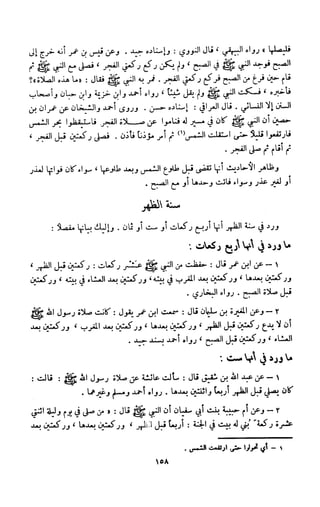 فليصلها » رواه البيهقي ، قال النووي : وإسناده جيد . وعن قيس بن عمر أنه خرج إلى
الصبح فوجد النبي ﷺ في الصبح ، ولم يكن ركع ركعتي الفجر ، فصلى مع النبي ﷺ ثم
قام حين فرغ من الصبح فركع ركعتي الفجر . فمر به النبي ﷺ فقال : « ما هذه الصلاة؟
فأخبره ، فسكت النبي ﷺ ولم يقل شيئاً ، رواه أحمد وابن خزيمة وابن حبان وأصحاب
السنن إلا النسائي . قال العراقي : إسناده حسن . وروى أحمد والشيخان عن عمران بن
حصين أن النبي ﷺ كان في مسير له فناموا عن صلاة الفجر فاستيقظوا بحر الشمس
فارتفعوا قليلاً حتى استقلت الشمس (١) ثم أمر مؤذناً فأذن ، فصلى ركعتين قبل الفجر ،
ثم أقام ثم صلى الفجر .
وظاهر الأحاديث أنها تقضى قبل طلوع الشمس وبعد طلوعها ، سواء كان فواتها لعذر
أو لغير عذر وسواء فاتت وحدها أو مع الصبح .
سنة الظهر
ورد في سنة الظهر أنها أربع ركعات أو ست أو ثمان . وإليك بيانها مفصلاً :
ما ورد في أنها أربع ركعات :
١ - عن ابن عمر قال : حفظت من النبي ﷺ عشر ركعات : ركعتين قبل الظهر ،
وركعتين بعدها ، وركعتين بعد المغرب في بيته ، وركعتين بعد العشاء في بيته ، وركعتين
قبل صلاة الصبح . رواه البخاري .
٢ - وعن المغيرة بن سليمان قال : سمعت ابن عمر يقول : كانت صلاة رسول الله ﷺ
أن لا يدع ركعتين قبل الظهر ، وركعتين بعدها ، وركعتين بعد المغرب ، وركعتين بعد
العشاء ، وركعتين قبل الصبح ، رواه أحمد بسند جيد .
ما ورد في أنها ست :
١ - عن عبد الله بن شقيق قال : سألت عائشة عن صلاة رسول الله ﷺ : قالت :
كان يصلي قبل الظهر أربعاً واثنتين بعدها . رواه أحمد ومسلم وغيرهما .
٢ - وعن أم حبيبة بنت أبي سفيان أن النبي ﷺ قال : « من صلى في يوم وليلة اثنتي
عشرة ركعة بُني له بيت في الجنة : أربعاً قبل الظهر ، وركعتين بعدها ، وركعتين بعد
١ - أي تحولوا حتى ارتفعت الشمس .
١٥٨